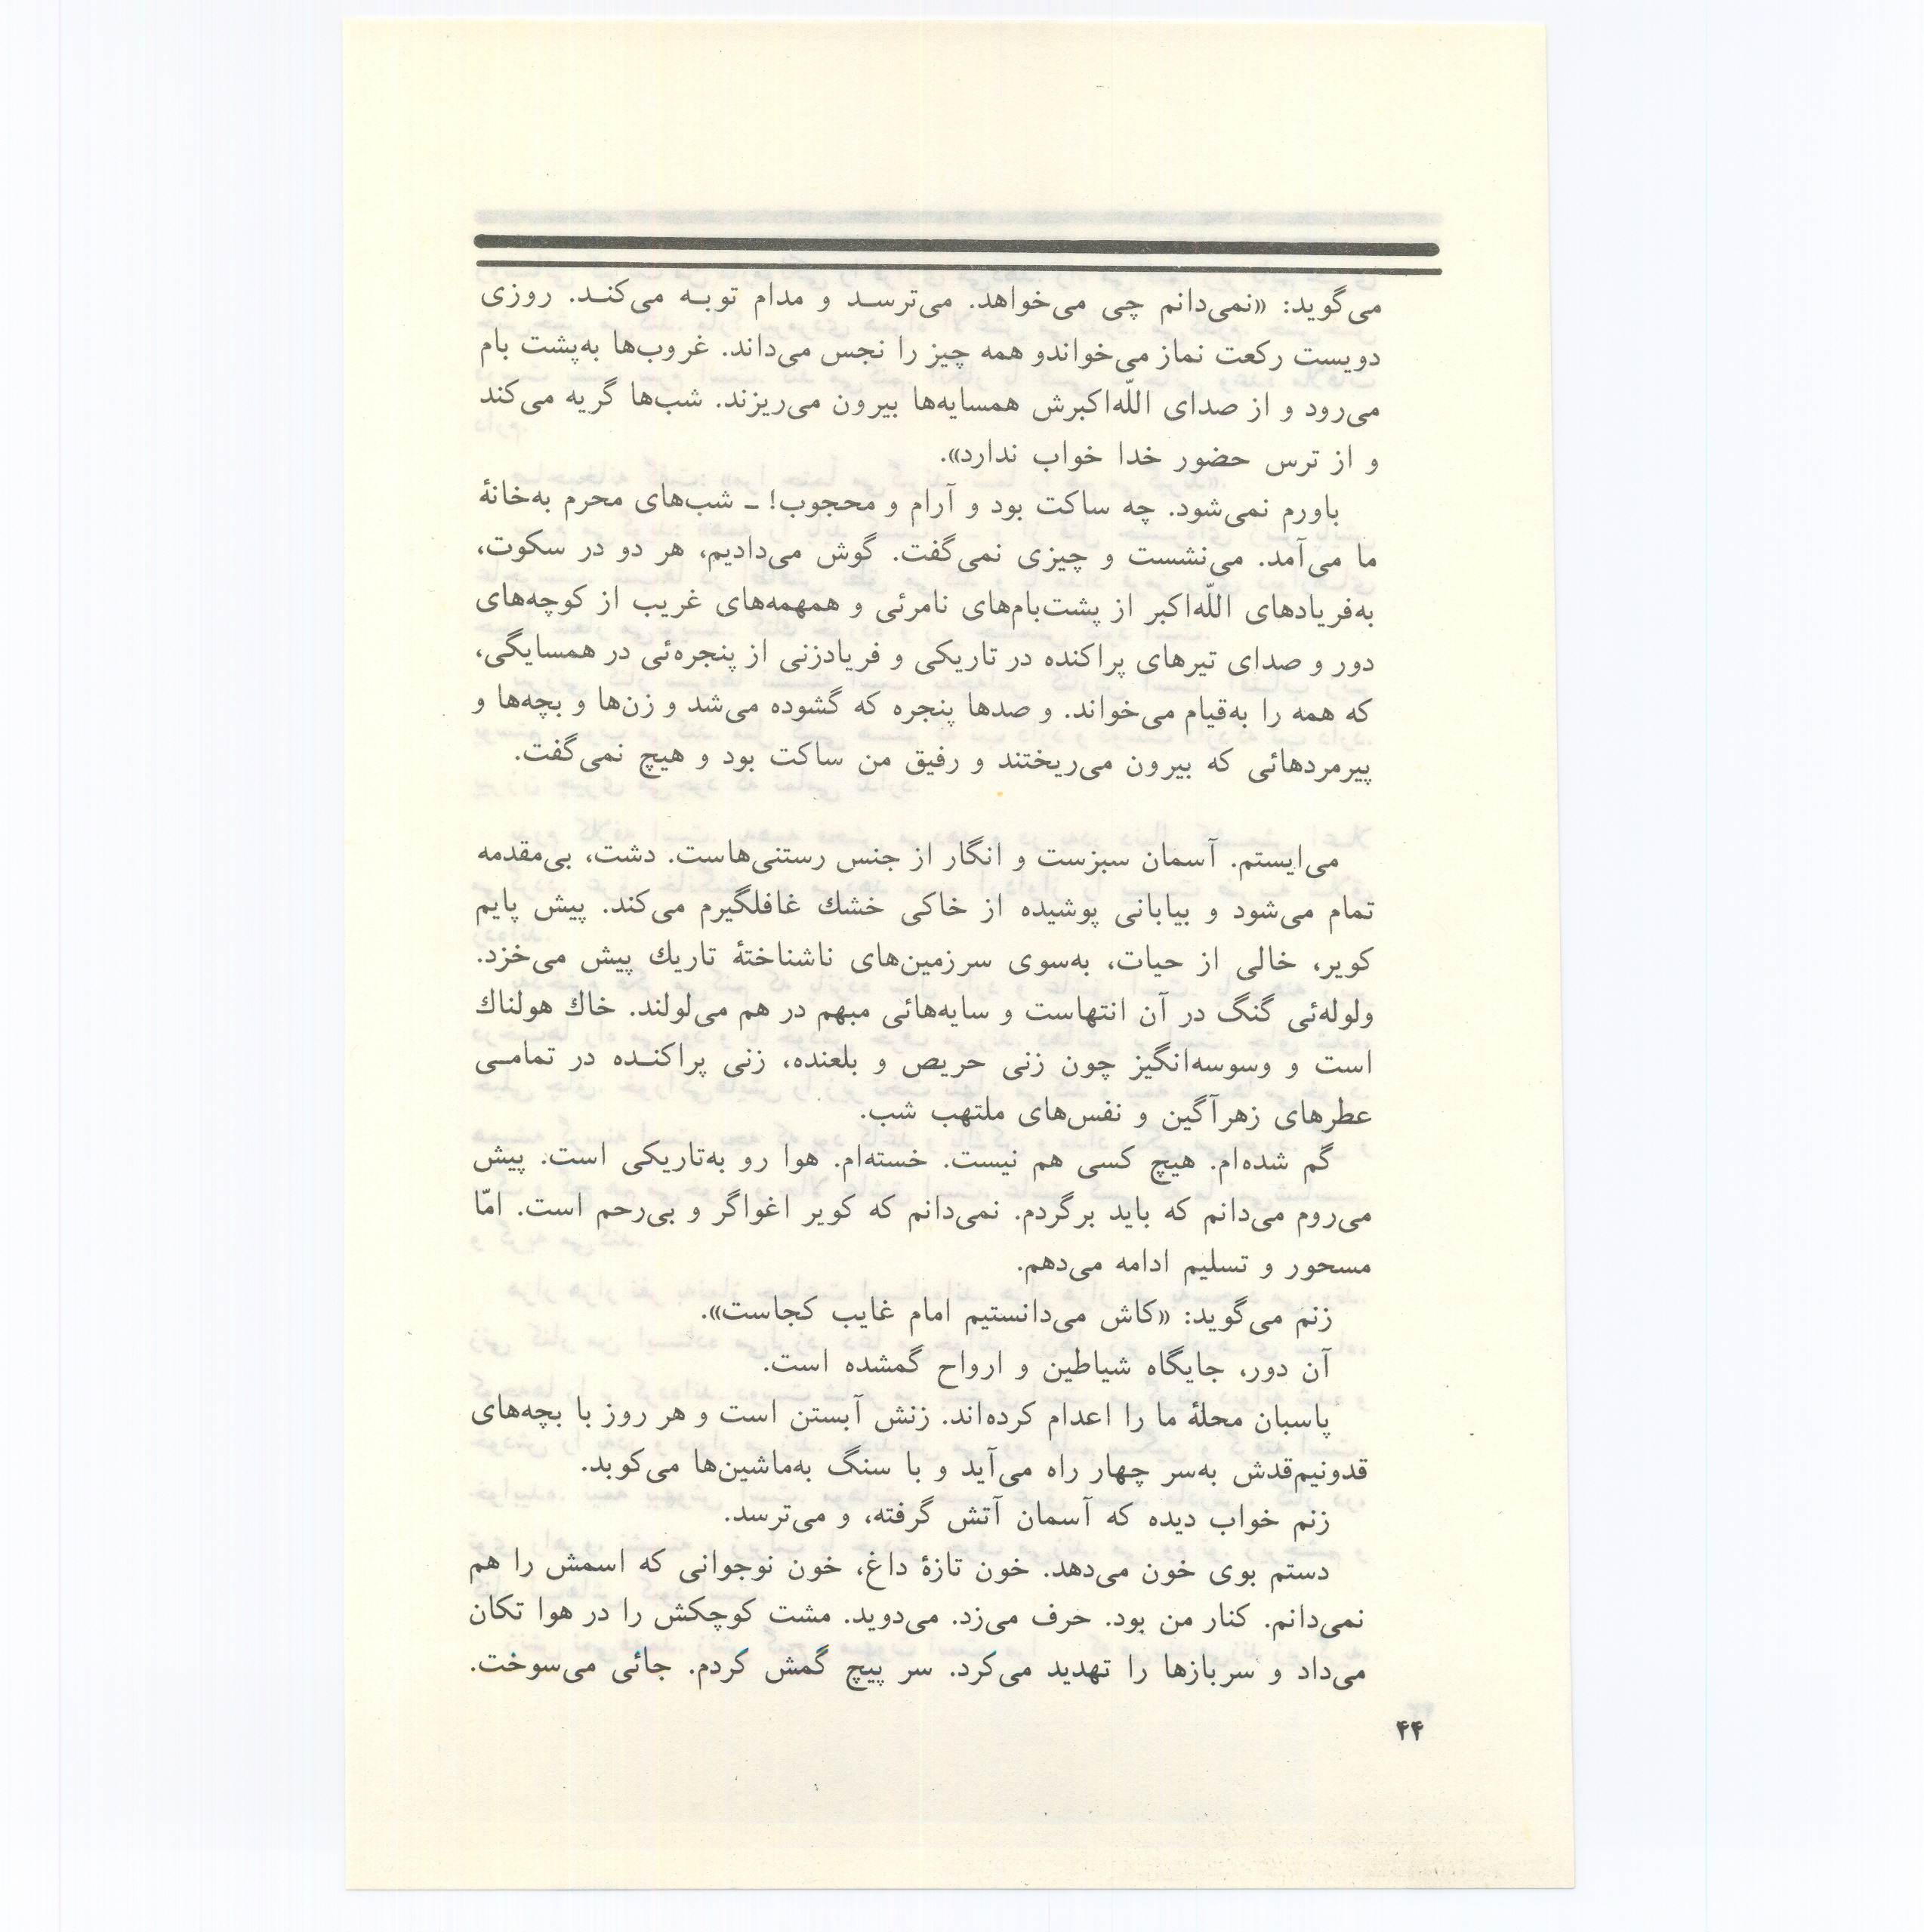 می‌گوید: «نمی‌دانم چی می‌خواهد. می‌ترسد و مدام توبه می‌کند. روزی
دویست رکعت نماز می‌خواندو همه چیز را نجس می‌داند. غروب‌ها به‌پشت بام
می‌رود و از صدای اللّه‌اکبرش همسایه‌ها بیرون می‌ریزند. شب‌ها گریه می‌کند
و از ترس حضور خدا خواب ندارد».
باورم نمی‌شود. چه ساکت بود و آرام و محجوب! ـ شب‌های محرم به‌خانهٔ
ما می‌آمد. می‌نشست و چیزی نمی‌گفت. گوش می‌دادیم، هر دو در سکوت،
به‌فریادهای اللّه‌اکبر از پشت‌بام‌های نامرئی و همهمه‌های غریب از کوچه‌های
دور و صدای تیرهای پراکنده در تاریکی و فریادزنی از پنجره‌ئی در همسایگی،
که همه را به‌قیام می‌خواند. و صدها پنجره که گشوده می‌شد و زن‌ها و بچه‌ها و
پیرمردهائی که بیرون می‌ریختند و رفیق من ساکت بود و هیچ نمی‌گفت.
می‌ایستم. آسمان سبزست و انگار از جنس رستنی‌هاست. دشت، بی‌مقدمه
تمام می‌شود و بیابانی پوشیده از خاکی خشك غافلگیرم می‌کند. پیش پایم
کویر، خالی از حیات، به‌سوی سرزمین‌های ناشناختهٔ تاریك پیش می‌خزد.
ولوله‌ئی گنگ در آن انتهاست و سایه‌هائی مبهم در هم می‌لولند. خاك هولناك
است و وسوسه‌انگیز چون زنی حریص و بلعنده، زنی پراکنده در تمامی
عطرهای زهرآگین و نفس‌های ملتهب شب.
گم شده‌ام. هیچ کسی هم نیست. خسته‌ام. هوا رو به‌تاریکی است. پیش
می‌روم می‌دانم که باید برگردم. نمی‌دانم که کویر اغواگر و بی‌رحم است. امّا
مسحور و تسلیم ادامه می‌دهم.
زنم می‌گوید: «کاش می‌دانستیم امام غایب کجاست».
آن دور، جایگاه شیاطین و ارواح گمشده است.
پاسبان محلهٔ ما را اعدام کرده‌اند. زنش آبستن است و هر روز با بچه‌های
قدونیم‌قدش به‌سر چهار راه می‌آید و با سنگ به‌ماشین‌ها می‌کوبد.
زنم خواب دیده که آسمان آتش گرفته، و می‌ترسد.
دستم بوی خون می‌دهد. خون تازهٔ داغ، خون نوجوانی که اسمش را هم
نمی‌دانم. کنار من بود. حرف می‌زد. می‌دوید. مشت کوچکش را در هوا تکان
می‌داد و سربازها را تهدید می‌کرد. سر پیچ گمش کردم. جائی می‌سوخت.
۴۴